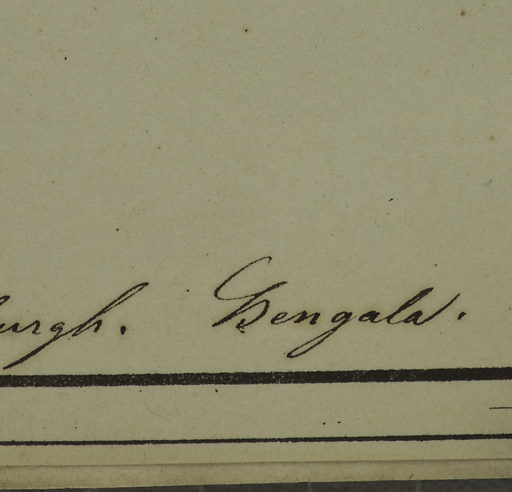 urgh. Bengala.